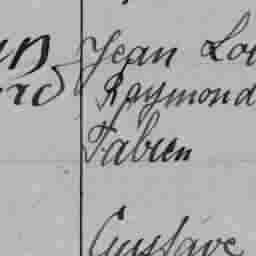 Jean Lou
Raymond
Fabien
Gustave